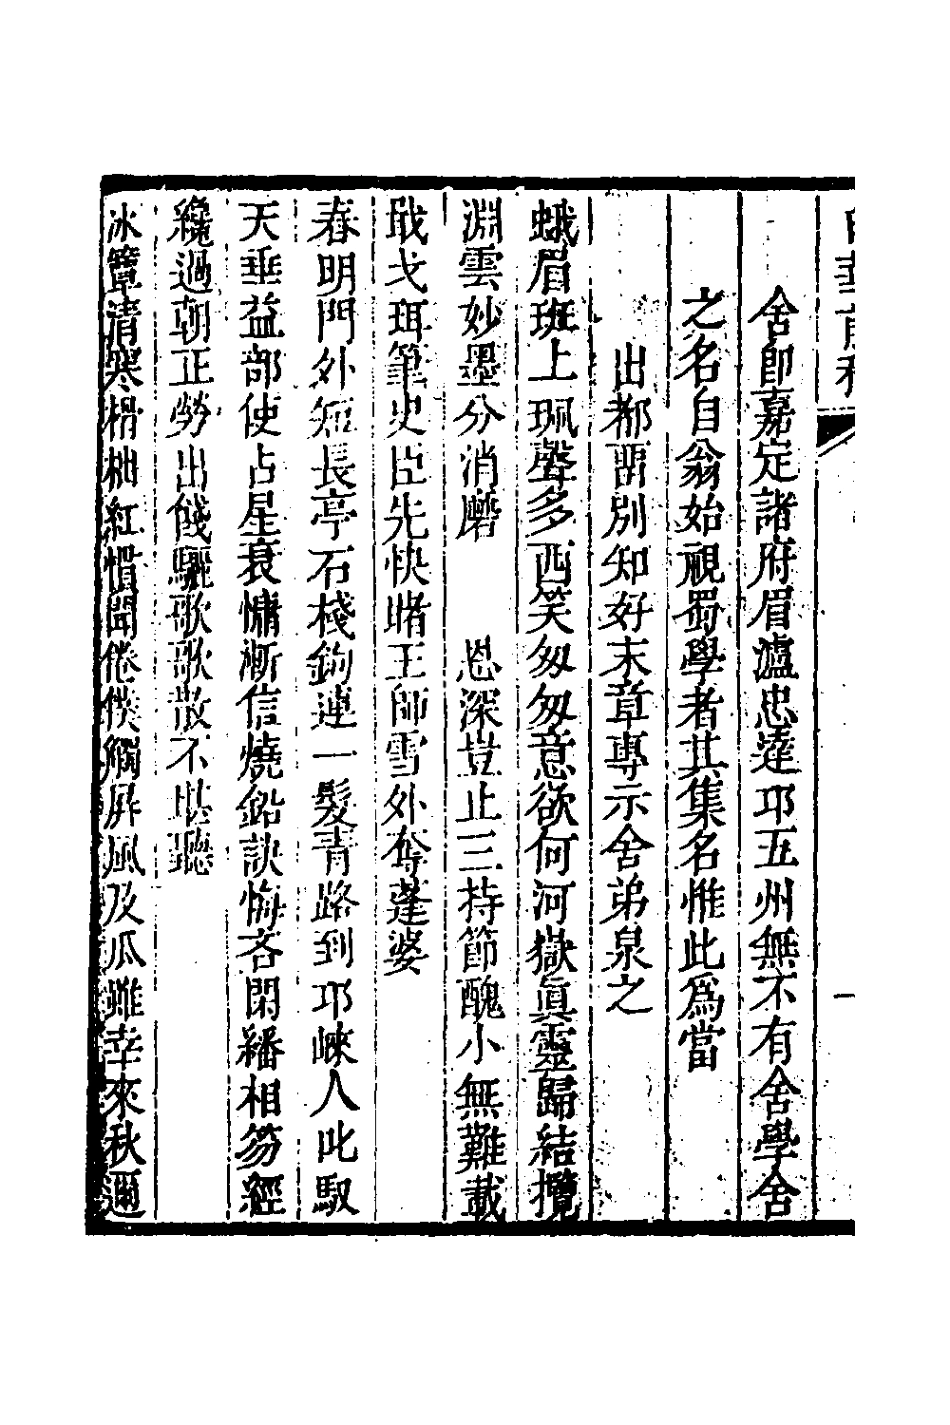 舍卽嘉定諸府眉瀘忠達邛五州無不有舍學舍
之名自翁始視蜀學者其集名惟此爲當
出都留別知好末章專示舍弟泉之
蛾眉班上珮聲多西笑匆匆意欲何河嶽眞靈歸結攬
淵雲妙墨分消磨 恩深豈止三持節醜小無難載
戢戈珥筆史臣先快睹王師雪外奪蓬婆
春明門外短長亭石棧鉤連一髮青路到邛崍人叱馭
天垂益部使占星衰慵漸信燒鉛訣悔吝閑繙相笏經
纔過朝正勞出餞驪歌歌散不堪聽
冰簟清寒榾柮紅慣聞倦僕觸屏風及瓜雖幸來秋邇